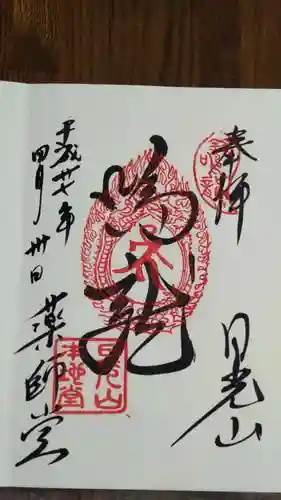 奉拝
日光山
鳴龍
平成廿七年
四月卅日
薬師堂
日光山
本地堂